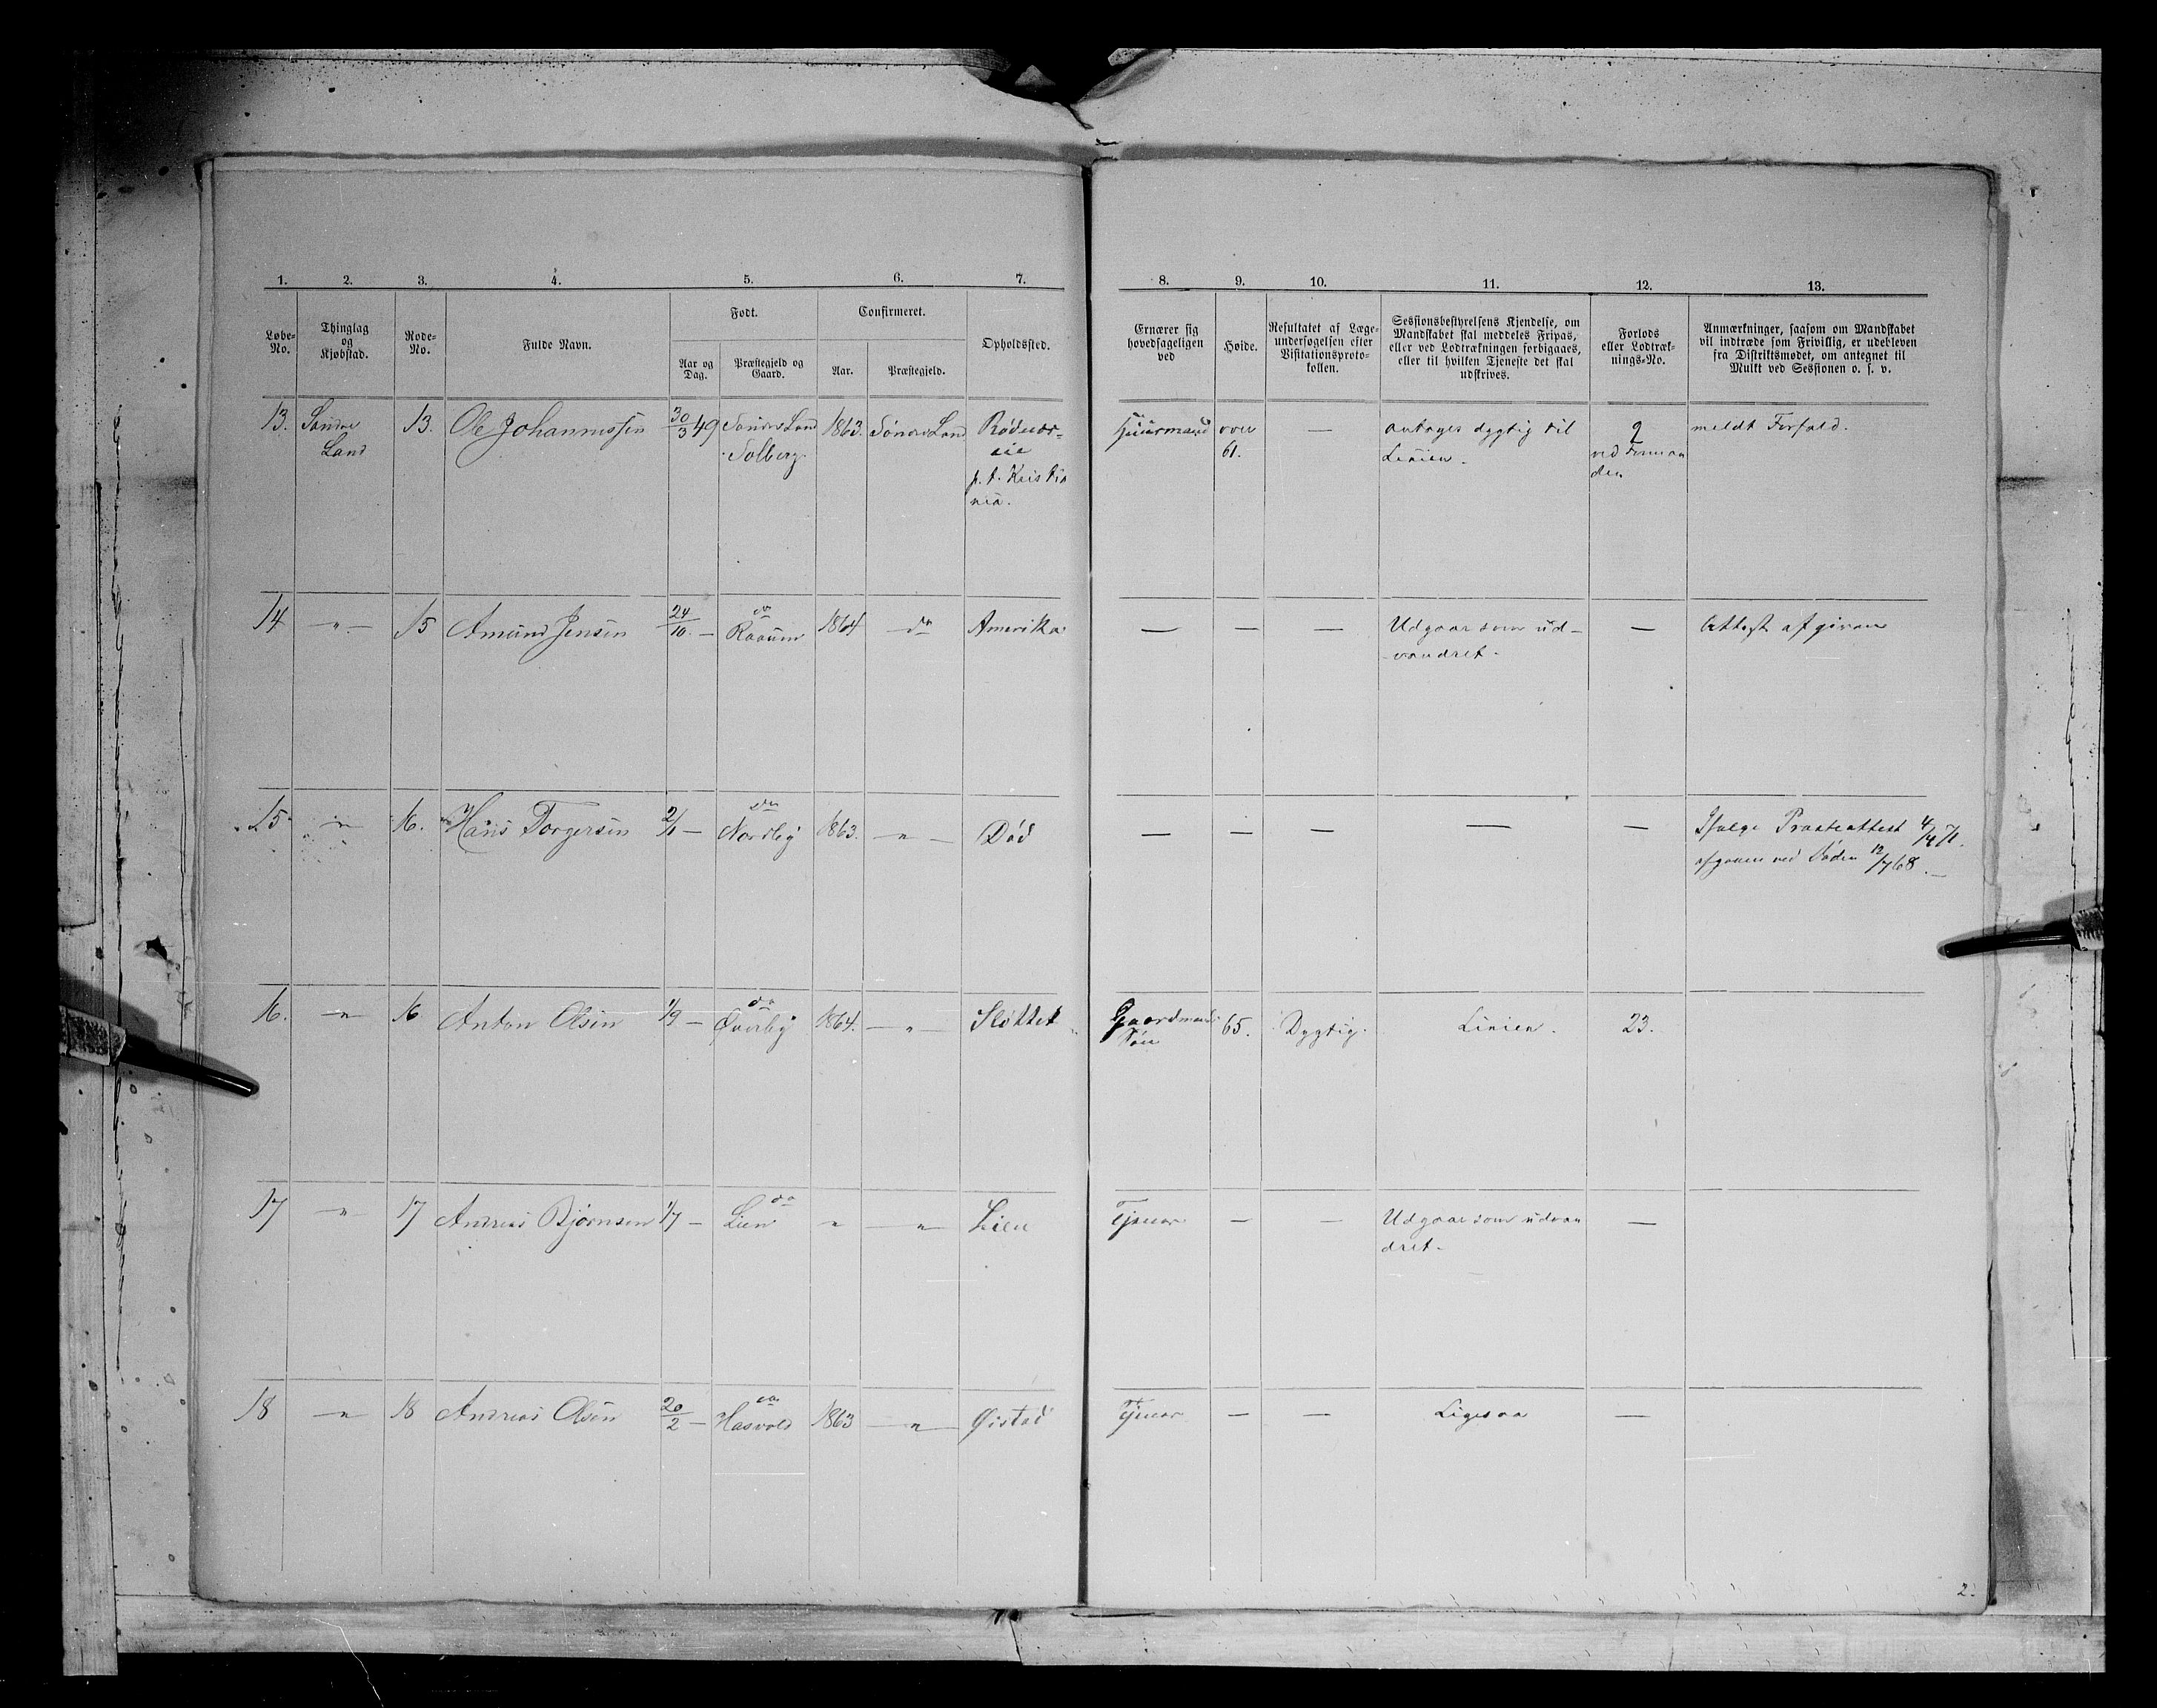 1. 2. 3. 4. 5. 6. 7. 8. 9. 10. 11. 12. 13.
Løbe-No.
Thinglag og Kjøbstad.
Rode-No.
Fulde Navn.
Født.
Aar og Dag.
Præstegjeld og Gaard.
Confirmeret.
Aar.
Præstegjeld.
Opholdssted.
Ernærer sig hovedsageligen ved
Høide.
Resultatet af Læge-undersøgelsen efter Visitationsproto-kollen.
Sessionsbestyrelsens Kjendelse, om Mandskabet skal meddeles Fripas, eller ved Lodtrækningen forbigaaes, eller til hvilken Tjeneste det skal udskrives.
Forlods eller Lodtræk-nings-No.
Anmærkninger, saasom om Mandskabet vil indtræde som Frivillig, er udebleven fra Distriktsmødet, om antegnet til Mulkt ved Sessionen o. s. v.
13. Søndre Land 13. Ole Johannessen 30/3 49 Søndre Land Solberg 1863. Søndre Land p. t. Kristiania. Huusmand over 61. — antages dygtig til Linien. 2 ved Forman den meldt Forfald.
14 -"- 15 Amund Jensen 24/10. — do Raaum 1864 do Amerika — — — Udgaar som ud-vandret. — Attest afgiven
15 -"- 16. Hans Torgersen 2/1 — do Nordby 1863. -"- Død — — — — — Ifølge Præsteattest 4/4 71. afgaaen ved Døden 12/7 68.
16. -"- 16 Anton Olsen 1/9 — do Øverby 1864. -"- Sløttet Gaardmands Søn 65. Dygtig. Linien. 23.
17 -"- 17 Andreas Bjørnsen 1/7 — do Lien " -"- Lien Tjener — — Udgaar som udvan dret. —
18 -"- 18 Andreas Olsen 20/2 — do Hasvold 1863 -"- Øistad Tjener — — Ligesaa —
2.